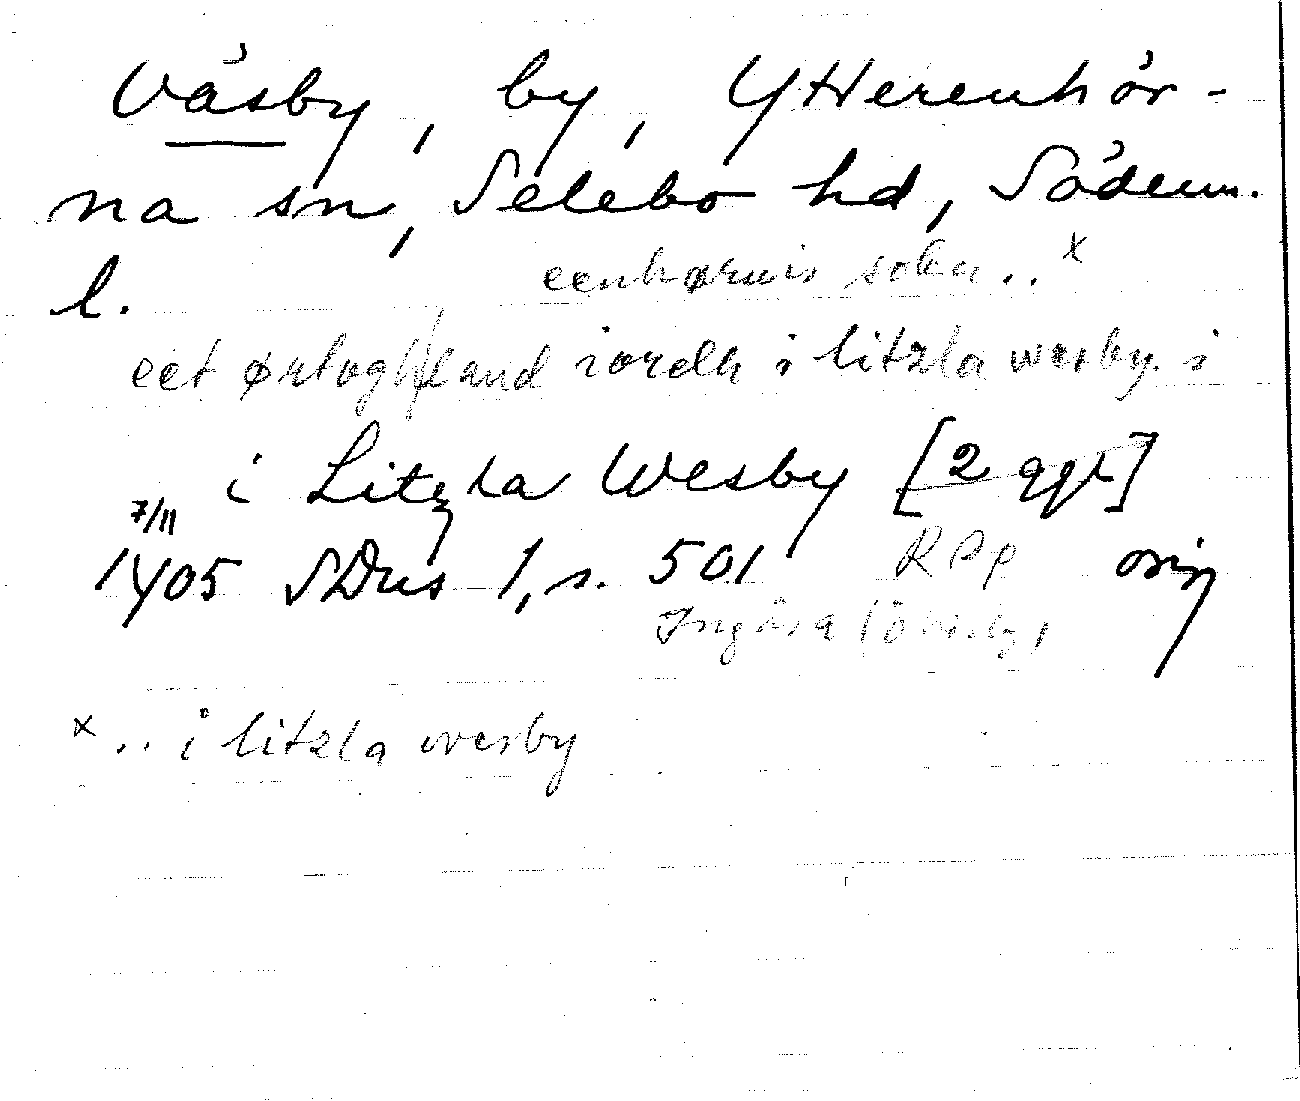 Väsby, by, Ytterenhör-
na sn, Selebo hd, Söderm.
l. eenhørnis sokn .. x
eet ørtogh land iordh i litzla wesby. i
i Litzla Wesby [2 ggr]
7/11
1405 SDns 1, s. 501 RPp orig
Ingåsa (Ö
x .. i litzla wesby